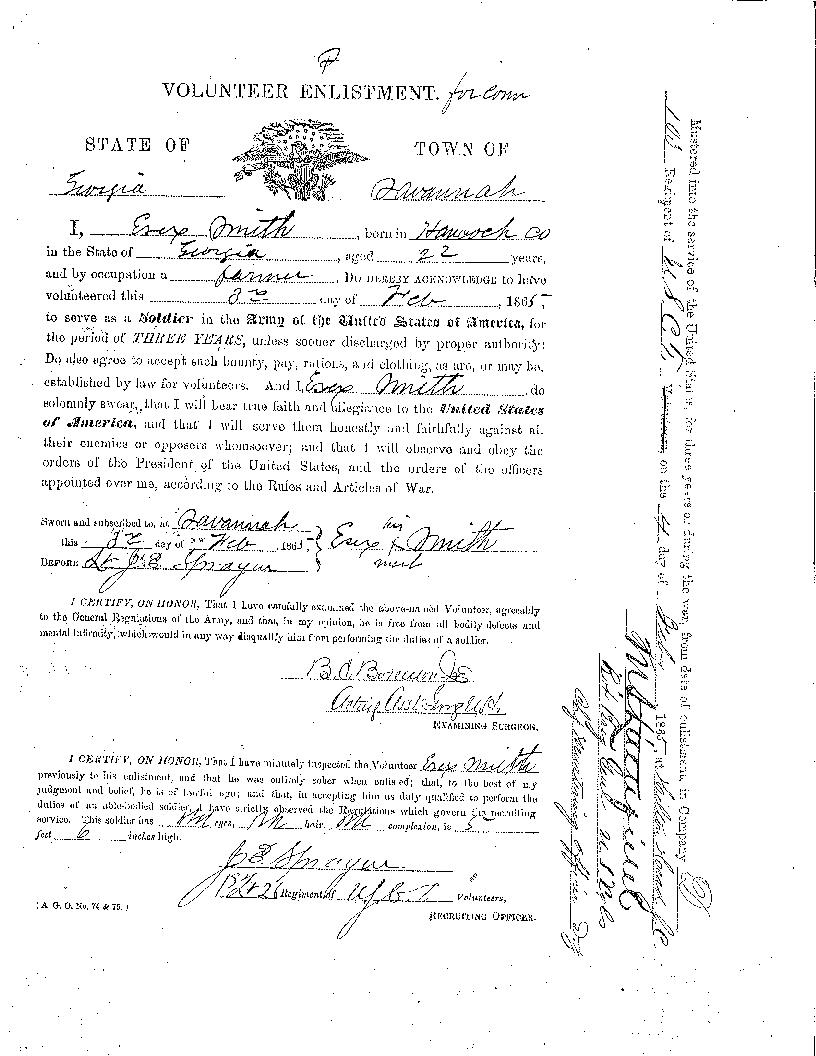 VOLUNTEER ENLISTMENT. for Conn
STATE OF TOWN OF
Georgia Savannah
I, Esex Smith, born in Hancock Co
in the State of Georgia, aged 22 years,
and by occupation a farmer, DO HEREBY ACKNOWLEDGE to have
volunteered this 3rd day of Feb, 1865
to serve as a Soldier in the Army of the United States of America, for
the period of THREE YEARS, unless sooner discharged by proper authority:
Do also agree to accept such bounty, pay, rations, and clothing, as are, or may be,
established by law for volunteers. And I, Esex Smith do
solemnly swear, that I will bear true faith and allegiance to the United States
of America, and that I will serve them honestly and faithfully against all
their enemies or opposers whomsoever; and that I will observe and obey the
orders of the President of the United States, and the orders of the officers
appointed over me, according to the Rules and Articles of War.
Sworn and subscribed to, at Savannah
this 3d day of Feb, 1865
his
Esex x Smith
mark
BEFORE Lt J. E. Sprayer
I CERTIFY, ON HONOR, That I have carefully examined the above-named Volunteer, agreeably
to the General Regulations of the Army, and that, in my opinion, he is free from all bodily defects and
mental infirmity, which would in any way disqualify him from performing the duties of a soldier.
EXAMINING SURGEON.
I CERTIFY, ON HONOR, That I have minutely inspected the Volunteer Esex Smith
previously to his enlistment, and that he was entirely sober when enlisted; that, to the best of my
judgment and belief, he is of lawful age; and that, in accepting him as duly qualified to perform the
duties of an able-bodied soldier, I have strictly observed the Regulations which govern the recruiting
service. This soldier has eyes, hair, complexion, is 5
feet 6 inches high.
J. E. Sprayer
Regiment of U.S.C.T. Volunteers,
RECRUITING OFFICER.
(A. G. O. No. 74 & 75.)
Mustered into the service of the United States, for three years or during the war, from date of enlistment, in Company D
103 Regiment of U.S.C.T. Volunteers on the 4 day of Feby, 1865, at